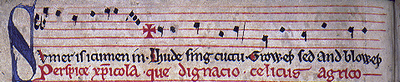 Sumer is icumen in· Lhude sing cuccu· Groweþ sed and bloweþ
Perspice xp̄icola· que dignacio· celicus agrico